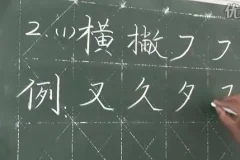 2.(1)横撇フフ
例:又久夕